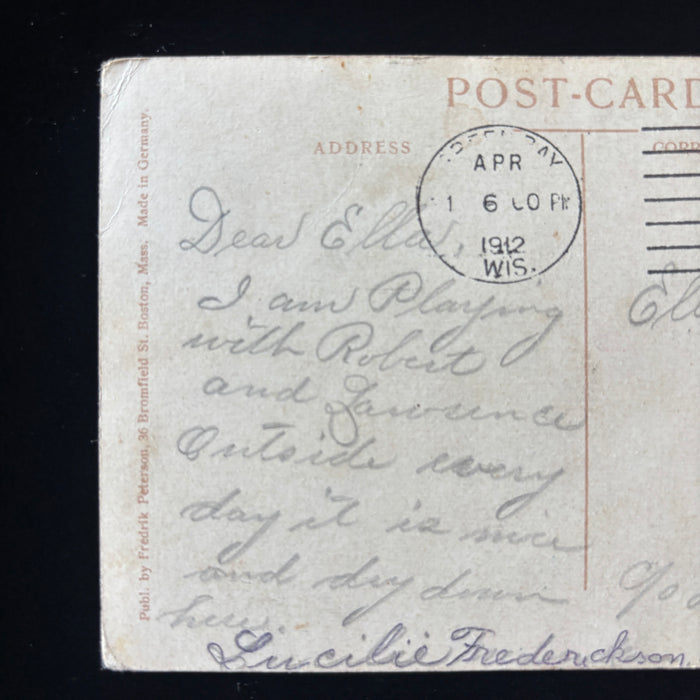 POST-CARD
ADDRESS
GREEN BAY
APR
1 6 00 PM
1912
WIS.
Dear Ella,
I am Playing
with Robert
and Lawrence
Outside every
day it is nice
and dry down
here.
Lucilie Frederickson
Ella
c/o
Publ. by Fredrik Peterson, 36 Bromfield St. Boston, Mass. Made in Germany.